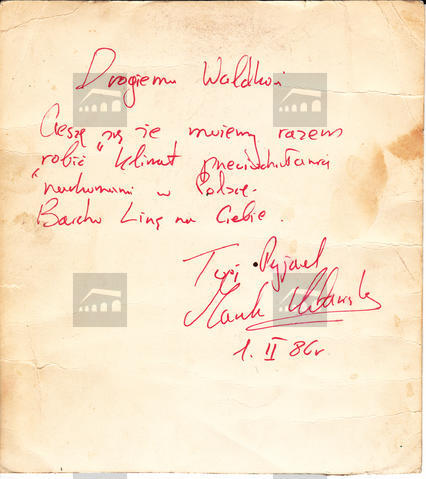 Drogiemu Waldkowi
Cieszę się że możemy razem
robić "klimat
w Polsce.
Bardzo Liczę na Ciebie.
Twój Przyjaciel
Marek
1. II 86r